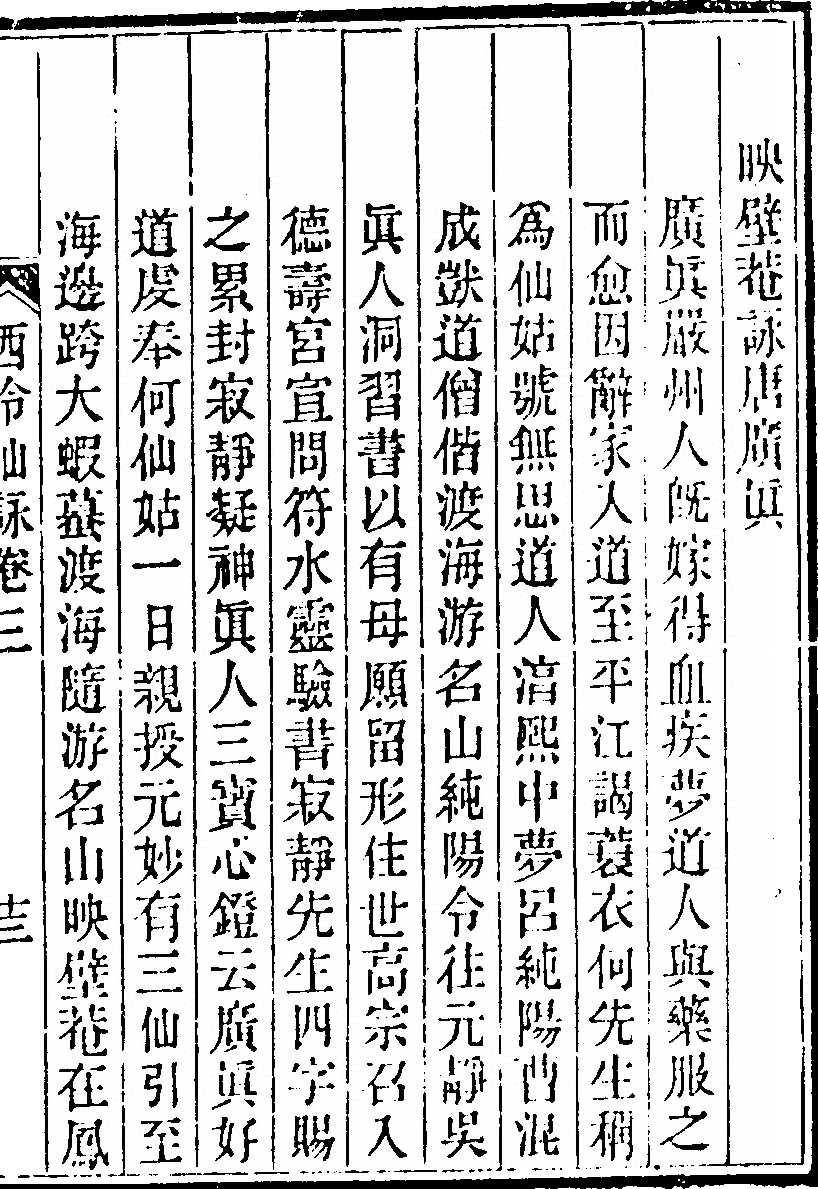 映壁菴詠唐廣眞
廣眞嚴州人旣嫁得血疾夢道人與藥服之
而愈因辭家入道至平江謁蓑衣何先生稱
爲仙姑號無思道人淳熙中夢呂純陽曹混
成獃道僧偕渡海游名山純陽令往元靜吳
眞人洞習書以有母願留形住世高宗召入
德壽宮宣問符水靈驗書寂靜先生四字賜
之累封寂靜凝神眞人三寶心鐙云廣眞好
道虔奉何仙姑一日親授元妙有三仙引至
海邊跨大蝦蟇渡海隨游名山映壁菴在鳳
西泠仙詠卷三 十三